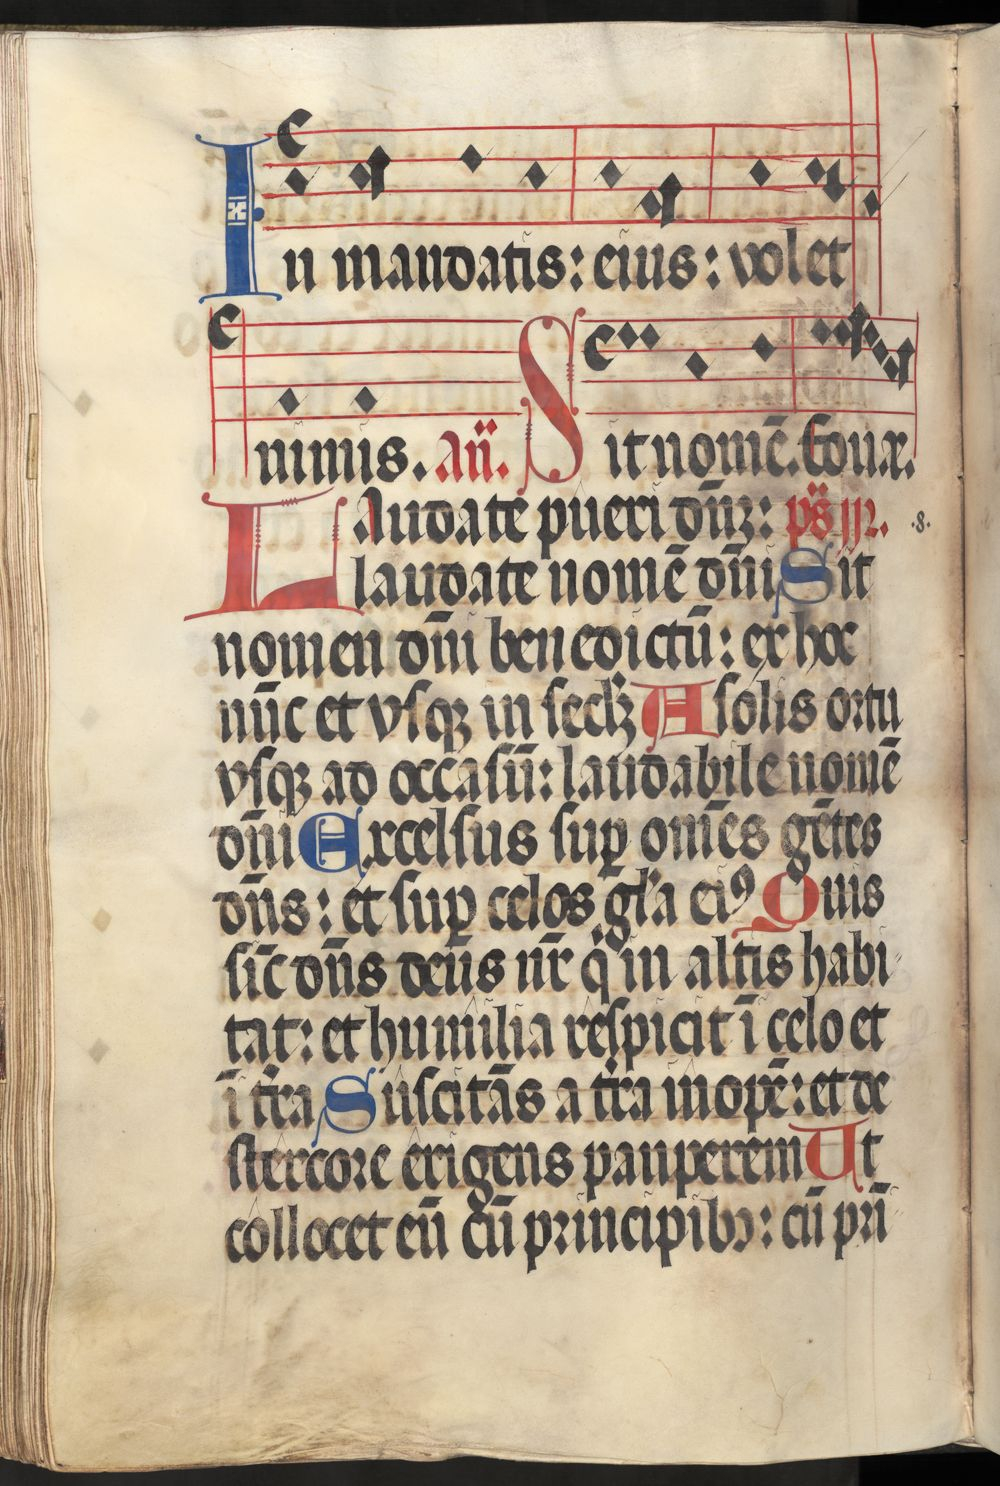 In mandatis: eius: volet
nimis. Añ. Sit nomē. Eouae.
Laudate pueri dñȝ: ps̄ m. .8.
laudate nomē dñi Sit
nomen dñi benedictū: ex hoc
nūc et vsqȝ in seclȝ A solis ortu
vsqȝ ad occasū: laudabile nomē
dñi Excelsus suꝑ om̄es gētes
dñs: et suꝑ celos gl̄a eiꝯ Quis
sic̄ dñs deus nr̄ q̄ in altis habi
tat: et humilia respicit ī celo et
ī tr̄a Suscitās a tr̄a inopē: et de
stercore erigens pauperem Ut
collocet eū cū principibȝ: cū pri